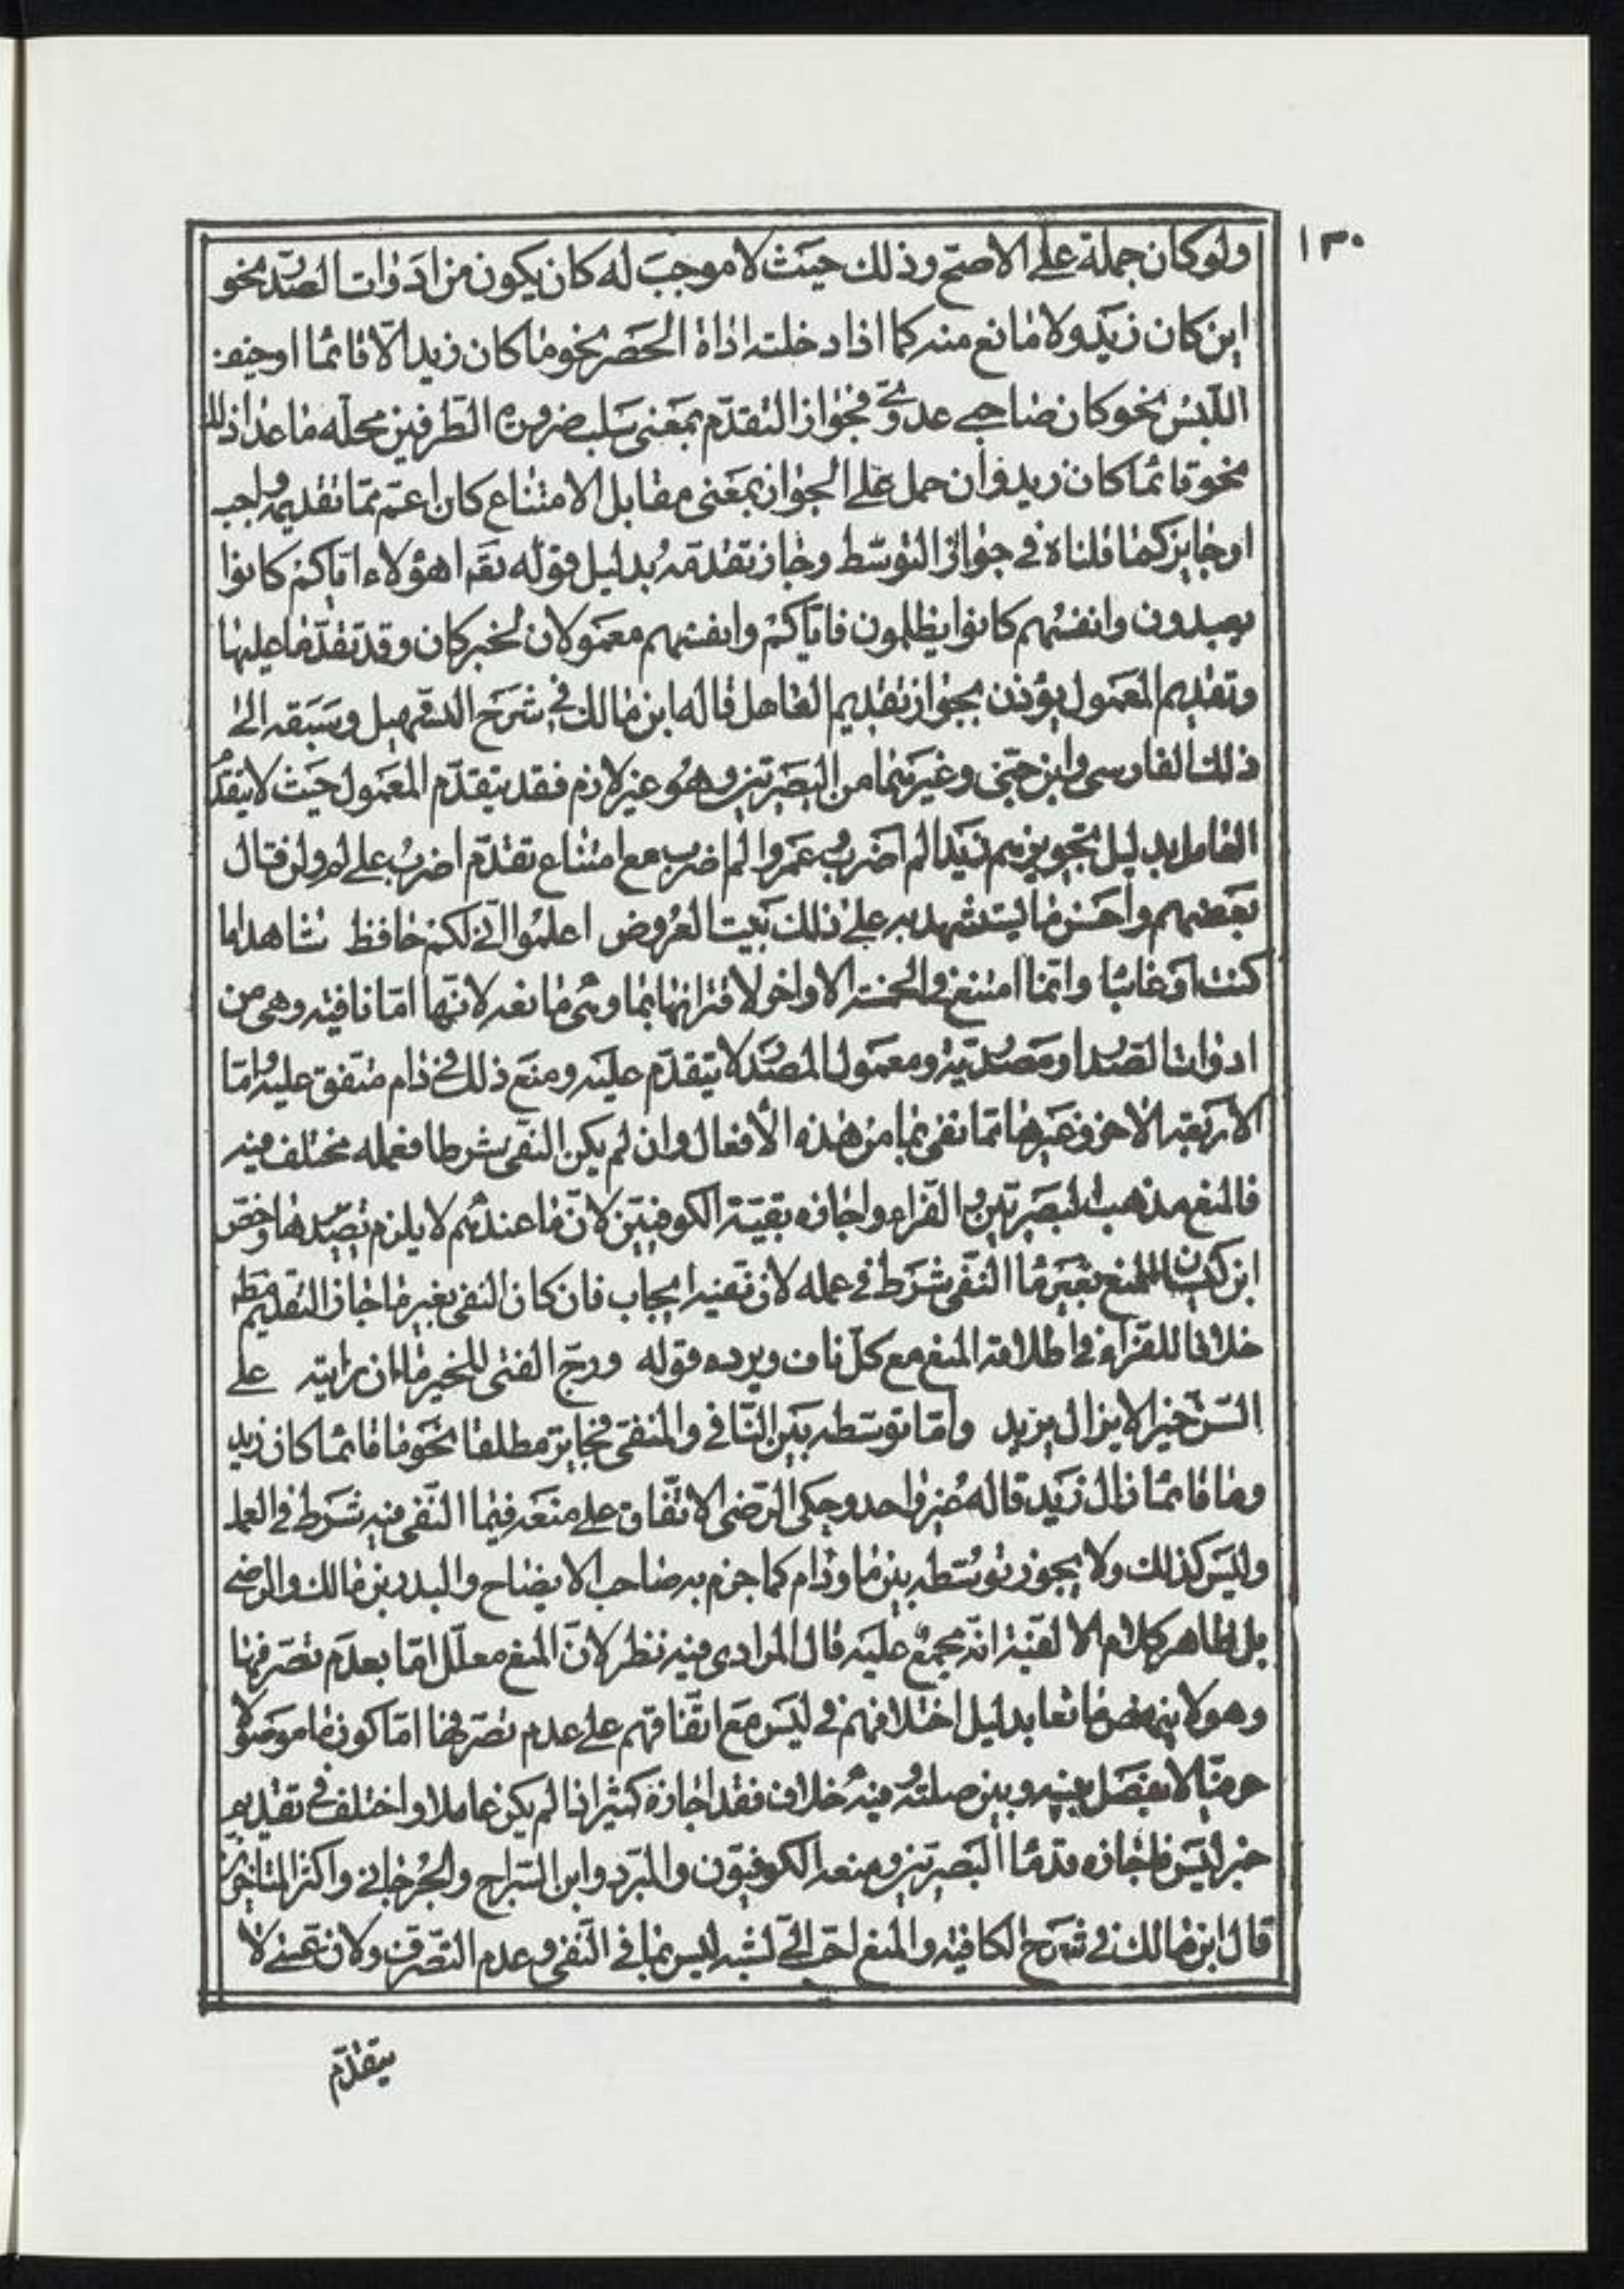 ١٣٠
ولو كان جملة على الاصح وذلك حيث لا موجب له كان يكون من ادوات الصدر نحو
اين كان زيد ولا مانع منه كما اذا دخلته اداة الحصر نحو ما كان زيد الا قائما او خيف
اللبس نحو كان صاحبي عدوي فجواز التقدم بمعنى سلب ضرورة الطرفين محله ما عدا ذلك
نحو قائما كان زيد وان حمل على الجواز بمعنى مقابل الامتناع كان اعم مما تقديمه واجب
او جايز كما قلناه في جواز التوسط وجاز تقدمه بدليل قوله تعم اهؤلاء اياكم كانوا
يعبدون وانفسهم كانوا يظلمون فاياكم وانفسهم معمولان لخبر كان وقد تقدما عليها
وتقديم المعمول يؤذن بجواز تقديم العامل قاله ابن مالك في شرح التسهيل وسبقه الى
ذلك الفارسي وابن جني وغيرهما من البصريين وهو غير لازم فقد يتقدم المعمول حيث لا يتقدم
العامل بدليل تجويزهم زيدا لم اضرب وعمروا لم اضرب مع امتناع تقدم اضرب على لم ولن قال
بعضهم واحسن ما يستشهد به على ذلك بيت العروض اعلموا اني لكم حافظ شاهدا ما
كنت او غائبا وانما امتنع في الخمسة الاواخر لاقترانها بما ومتى ما نعه لانها اما نافيه وهي من
ادوات الصدر او مصدرية ومعمول المصدر لا يتقدم عليه ومنع ذلك في دام متفق عليه واما
الاربعة الاخر وغيرها مما نفى بما من هذه الافعال وان لم يكن النفي شرطا فعمله مختلف فيه
فالمنع مذهب البصريين والفراء واجازه بقية الكوفيين لان ما عندهم لا يلزم تصديرها وخص
ابن كيسان المنع بغير ما النفي شرط في عمله لان نفيه ايجاب فان كان النفي بغير ما جاز التقديم مطلقا
خلافا للفراء في اطلاقه المنع مع كل ناف ويرده قوله ورج الفتى للخير ما ان رايته على
السن خيرا لا يزال يزيد واما توسطه بين النافي والمنفي فجايز مطلقا نحو ما قائما كان زيد
وما قائما زال زيد قاله غير واحد وحكى الرضي الاتفاق على منعه فيما النفي فيه شرط في العمل
وليس كذلك ولا يجوز توسطه بين ما ودام كما جزم به صاحب الايضاح والبدر بن مالك والرضي
بل ظاهر كلام الالفية انه مجمع عليه قال المرادي فيه نظر لان المنع معلل اما بعدم تصرفها
وهو لا ينهض مانعا بدليل اختلافهم في ليس مع اتفاقهم على عدم تصرفها اما كون ما موصولا
حرفيا لا يفصل بينه وبين صلته وفيه خلاف فقد اجازه كثير اذا لم يكن عاملا واختلف في تقديم
خبر ليس فاجازه قدما البصريين ومنعه الكوفيون والمبرد وابن السراج والجرجاني واكثر المتاخرين
قال ابن مالك في شرح الكافيه والمنع احب الي لشبه ليس بما في النفي وعدم التصرف ولان عسى لا
يتقدم